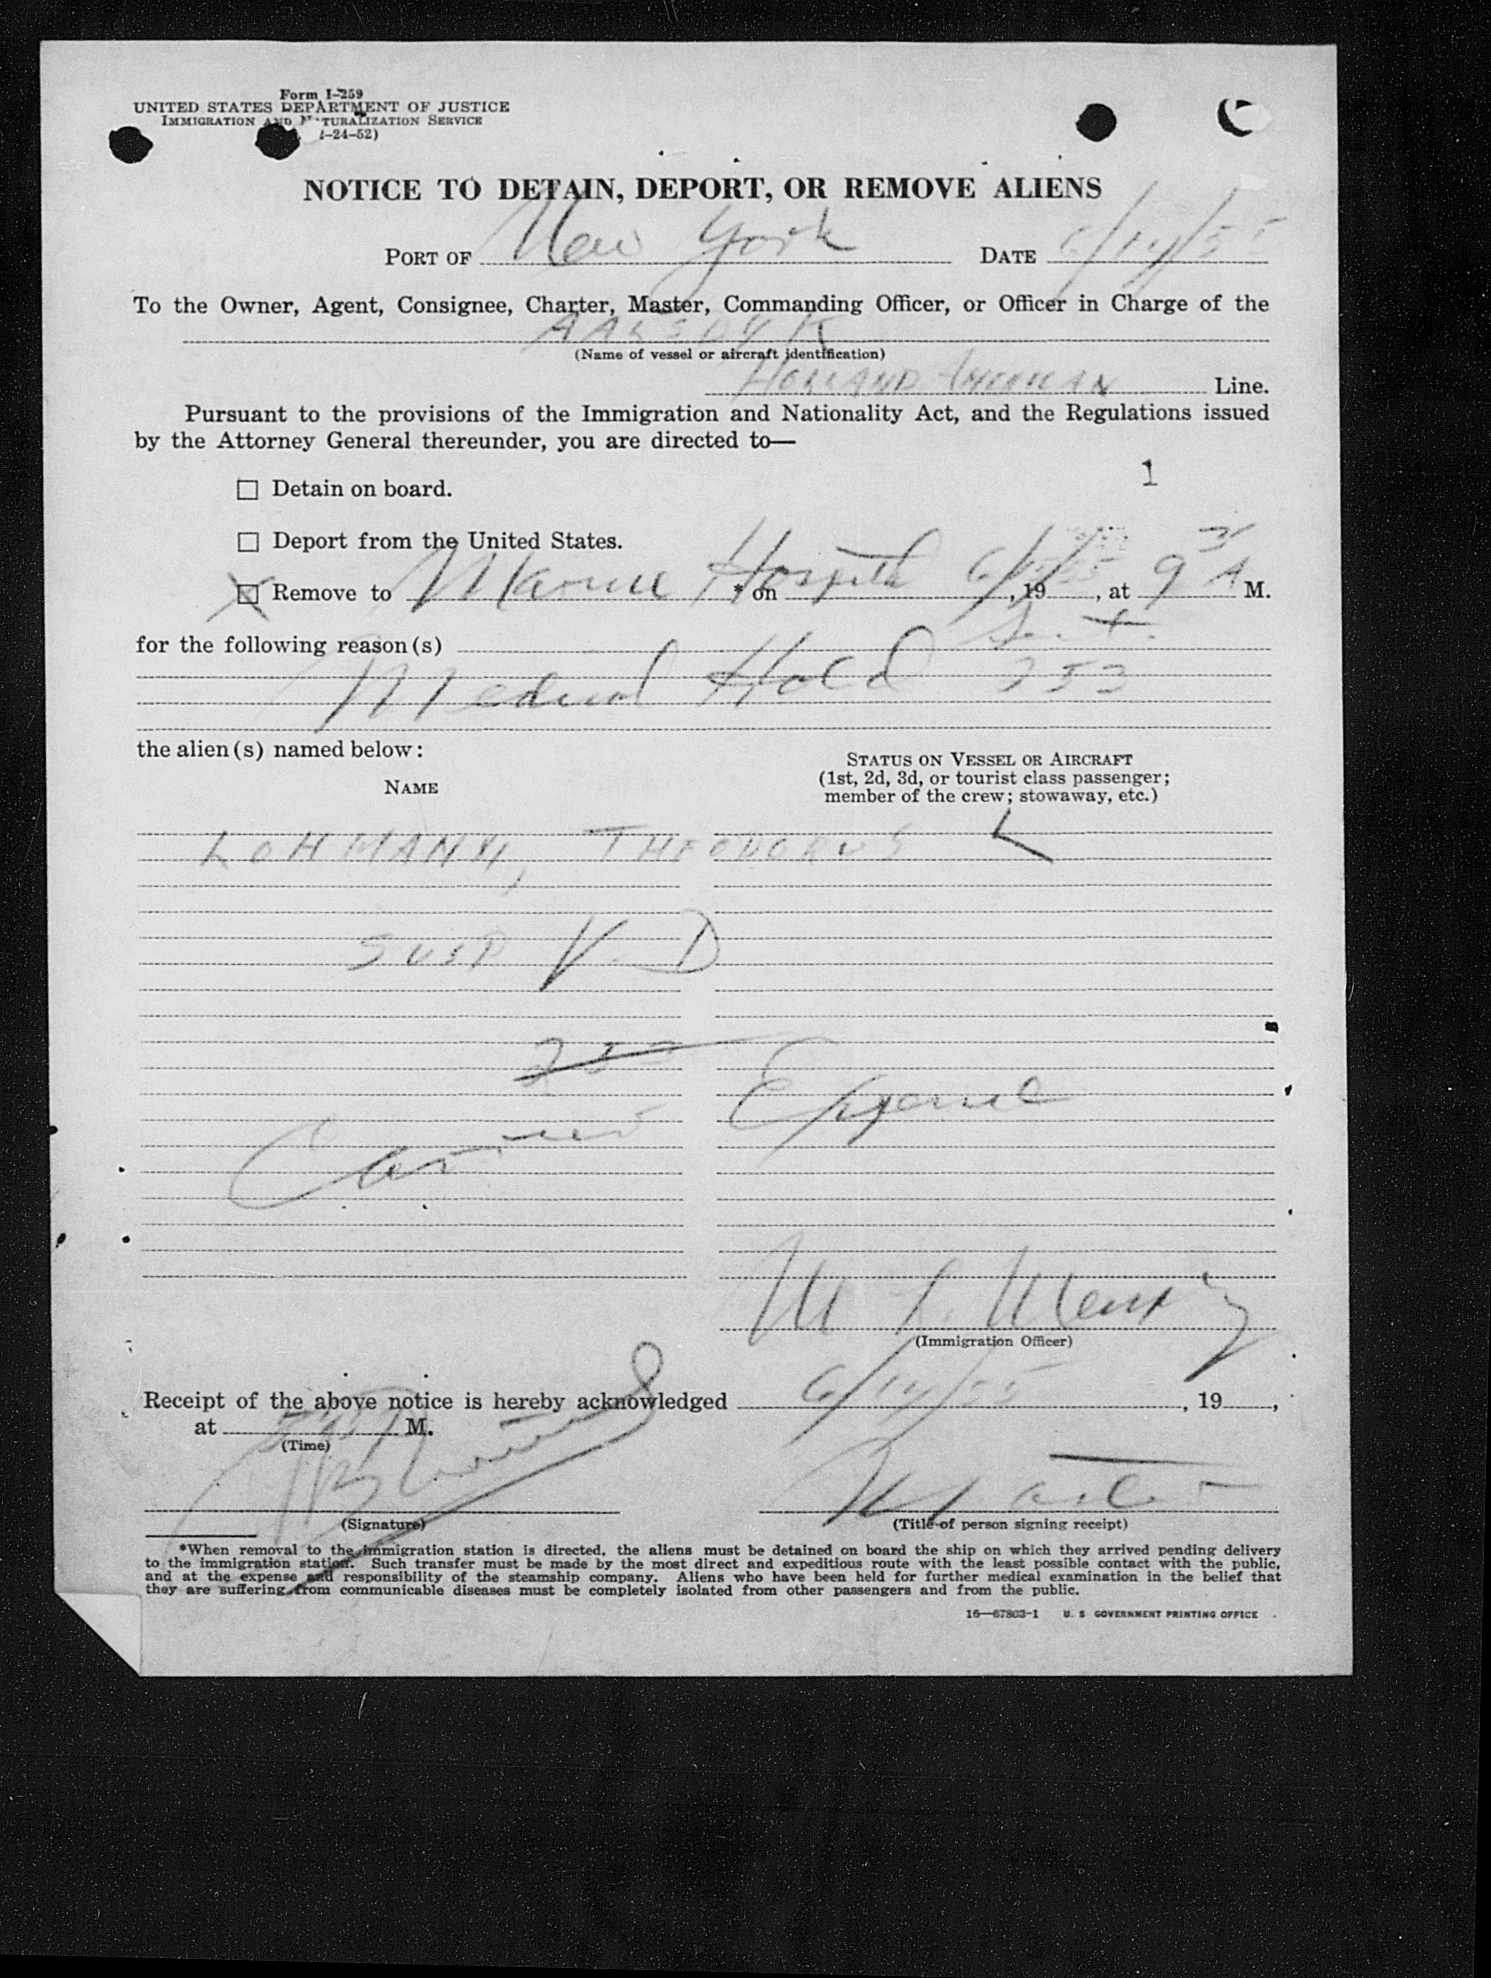 Form I-259
UNITED STATES DEPARTMENT OF JUSTICE
IMMIGRATION AND NATURALIZATION SERVICE
-24-52)
NOTICE TO DETAIN, DEPORT, OR REMOVE ALIENS
PORT OF New York DATE 6/14/55
To the Owner, Agent, Consignee, Charter, Master, Commanding Officer, or Officer in Charge of the
AALSDYK
(Name of vessel or aircraft identification)
HOLLAND AMERICAN Line.
Pursuant to the provisions of the Immigration and Nationality Act, and the Regulations issued
by the Attorney General thereunder, you are directed to—
1
☐ Detain on board.
☐ Deport from the United States.
☒ Remove to Marine Hospital * on 6/15/55, 19, at 9 A M.
for the following reason(s)
Medical Hold 253
the alien(s) named below:
NAME
STATUS ON VESSEL OR AIRCRAFT
(1st, 2d, 3d, or tourist class passenger;
member of the crew; stowaway, etc.)
LOHMANN, THEODORUS
SUSP V. D
253
Carrier Expense
(Immigration Officer)
Receipt of the above notice is hereby acknowledged 6/14/55, 19,
at M.
(Time)
Master
(Signature)
(Title of person signing receipt)
*When removal to the immigration station is directed, the aliens must be detained on board the ship on which they arrived pending delivery
to the immigration station. Such transfer must be made by the most direct and expeditious route with the least possible contact with the public,
and at the expense and responsibility of the steamship company. Aliens who have been held for further medical examination in the belief that
they are suffering from communicable diseases must be completely isolated from other passengers and from the public.
16—67803-1 U. S GOVERNMENT PRINTING OFFICE